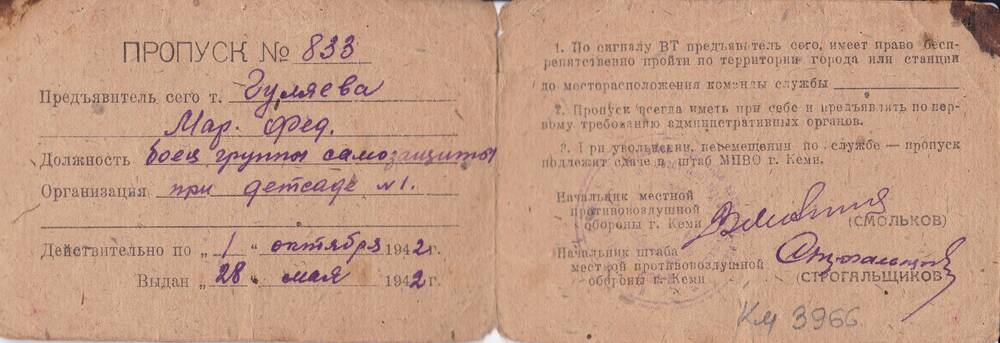 ПРОПУСК № 833
Предъявитель сего т. Гуляева
Мар. Фед.
Должность боец группы самозащиты
Организация при детсаде №1.
Действительно по „1“ октября 1942 г.
Выдан „28“ мая 1942 г.
1. По сигналу ВТ предъявитель сего, имеет право бесп-
репятственно пройти по территории города или станции
до месторасположения команды службы
2. Пропуск всегда иметь при себе и предъявлять по пер-
вому требованию административных органов.
3. При увольнении, перемещении по службе — пропуск
подлежит сдаче в штаб МПВО г. Кеми.
Начальник местной
противовоздушной
обороны г. Кеми
(СМОЛЬКОВ)
Начальник штаба
местной противовоздушной
обороны г. Кеми
(СТРОГАЛЬЩИКОВ)
КМ 3966